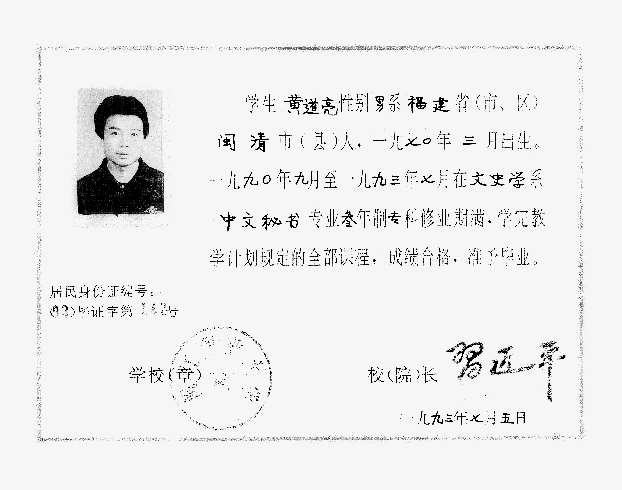 学生 黄道亮 性别 男 系 福建 省（市、区）
闽清 市（县）人，一九七〇年 三 月出生。
一九九〇年九月至一九九三年七月在文史学系
中文秘书 专业叁年制专科修业期满，学完教
学计划规定的全部课程，成绩合格，准予毕业。
居民身份证编号：
(93)毕证字第 号
学校（章）
校（院）长 习近平
一九九三年七月五日